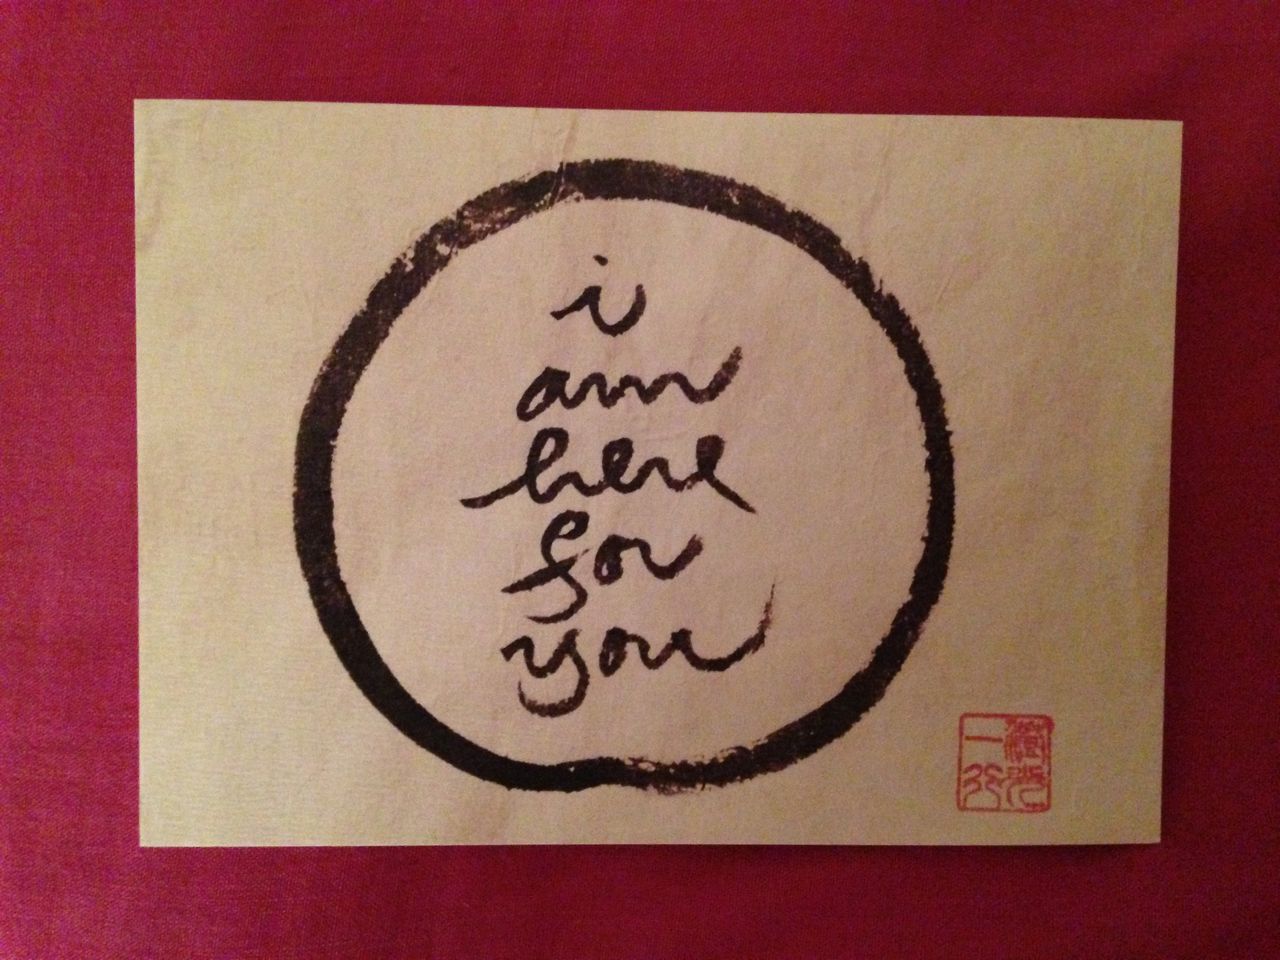 i
am
here
for
you
一行